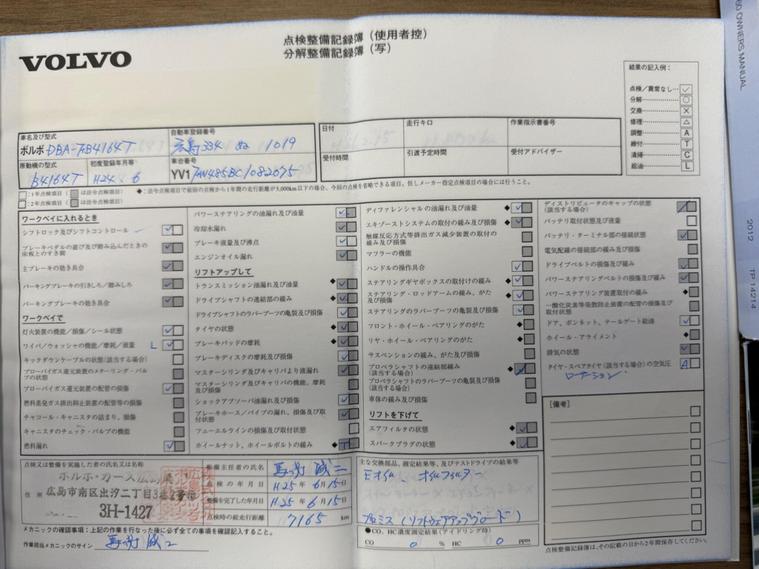 VOLVO
点検整備記録簿（使用者控）
分解整備記録簿（写）
結果の記入例：
点検／異常なし… ✓
分解……… ○
交換……… ×
修理……… △
調整……… A
締付……… T
清掃……… C
給油……… L
車名及び型式
ボルボ DBA-FB4164T
自動車登録番号
広島 334 ぬ 1019
日付
走行キロ
作業指示書番号
原動機の型式
B4164T
初度登録年月等
H24. 6
車台番号
YV1
受付時間
引渡予定時間
受付アドバイザー
ワークベイに入れるとき
シフトロック及びシフトコントロール
ブレーキペダルの遊び及び踏み込んだときの
床板とのすき間
主ブレーキの効き具合
パーキングブレーキの引きしろ／踏みしろ
パーキングブレーキの効き具合
ワークベイで
灯火装置の機能／損傷／シール状態
ワイパ／ウォッシャの機能／摩耗／液量 L
キックダウンケーブルの状態（該当する場合）
ブローバイガス還元装置のメターリング・バル
ブの状態
ブローバイガス還元装置の配管の損傷
燃料蒸発ガス排出抑止装置の配管等の損傷
チャコール・キャニスタの詰まり、損傷
キャニスタのチェック・バルブの機能
燃料漏れ
パワーステアリングの油漏れ及び油量
冷却水漏れ
ブレーキ液量及び沸点
エンジンオイル漏れ
リフトアップして
トランスミッション油漏れ及び油量
ドライブシャフトの連結部の緩み
ドライブシャフトのラバーブーツの亀裂及び損傷
タイヤの状態
ブレーキパッドの摩耗
ブレーキディスクの摩耗及び損傷
マスターシリンダ及びキャリパより液漏れ
マスターシリンダ及びキャリパの機能、摩耗
及び損傷
ショックアブソーバ油漏れ及び損傷
ブレーキホース／パイプの漏れ、損傷及び取
付状態
フューエルラインの損傷及び取付状態
ホイールナット、ホイールボルトの緩み
ディファレンシャルの油漏れ及び油量
エキゾーストシステムの取付の緩み及び損傷
触媒反応方式等排出ガス減少装置の取付の
緩み及び損傷
マフラーの機能
ハンドルの操作具合
ステアリングギヤボックスの取付けの緩み
ステアリング・ロッドアームの緩み、がた
及び損傷
ステアリングのラバーブーツの亀裂及び損傷
フロント・ホイール・ベアリングのがた
リヤ・ホイール・ベアリングのがた
サスペンションの緩み、がた及び損傷
プロペラシャフトの連結部緩み
（該当する場合）
プロペラシャフトのラバーブーツの亀裂及び損傷
（該当する場合）
車体の緩み及び損傷
リフトを下げて
エアフィルタの状態
スパークプラグの状態
ディストリビュータのキャップの状態
（該当する場合）
バッテリ取付状態及び液量
バッテリ・ターミナル部の接続状態
電気配線の接続部の緩み及び損傷
ドライブベルトの損傷及び緩み
パワーステアリングベルトの損傷及び緩み
パワーステアリング装置取付の緩み
一酸化炭素等発散防止装置の配管の損傷及び
取付状態
ドア、ボンネット、テールゲート給油
ホイール・アライメント
排気の状態
タイヤ・スペアタイヤ（該当する場合）の空気圧 A
ローテーション
［備考］
点検又は整備を実施した者の氏名又は名称
ボルボ・カーズ広島
広島市南区出汐二丁目3番2号
3H-1427
整備主任者の氏名
点検の年月日 H25年 6月15日
整備を完了した年月日 H25年 6月15日
点検時の総走行距離 7165 km
主な交換部品、測定結果等、及びテストドライブの結果等
Eオイル、オイルフィルター
プロミス（ソフトウェアアップグレード）
メカニックの確認事項：上記の作業を行なった後に必ず全ての事項を確認記入すること。
作業担当メカニックのサイン
CO、HC濃度測定結果（アイドリング時）
CO 0 % HC 0 ppm
点検整備記録簿は、その記載の日から2年間保存してください。
OWNERS MANUAL
2012
TP 14214